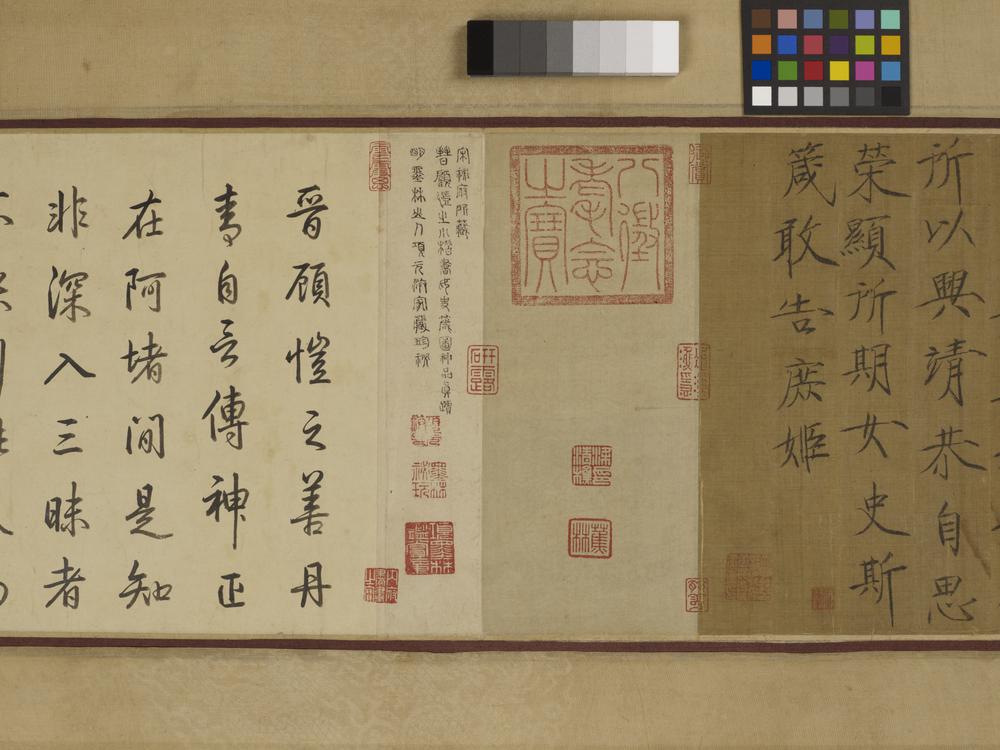 所以興靖恭自思
榮顯所期女史斯
箴敢告庶姬
八徵
耄念
之寶
蕉林
宋祕府所藏
晉顧愷之小楷書女史箴圖神品真蹟
明墨林山人項元汴家藏珍祕
墨林
祕玩
晉顧愷之善丹
青自言傳神正
在阿堵間是知
非深入三昧者